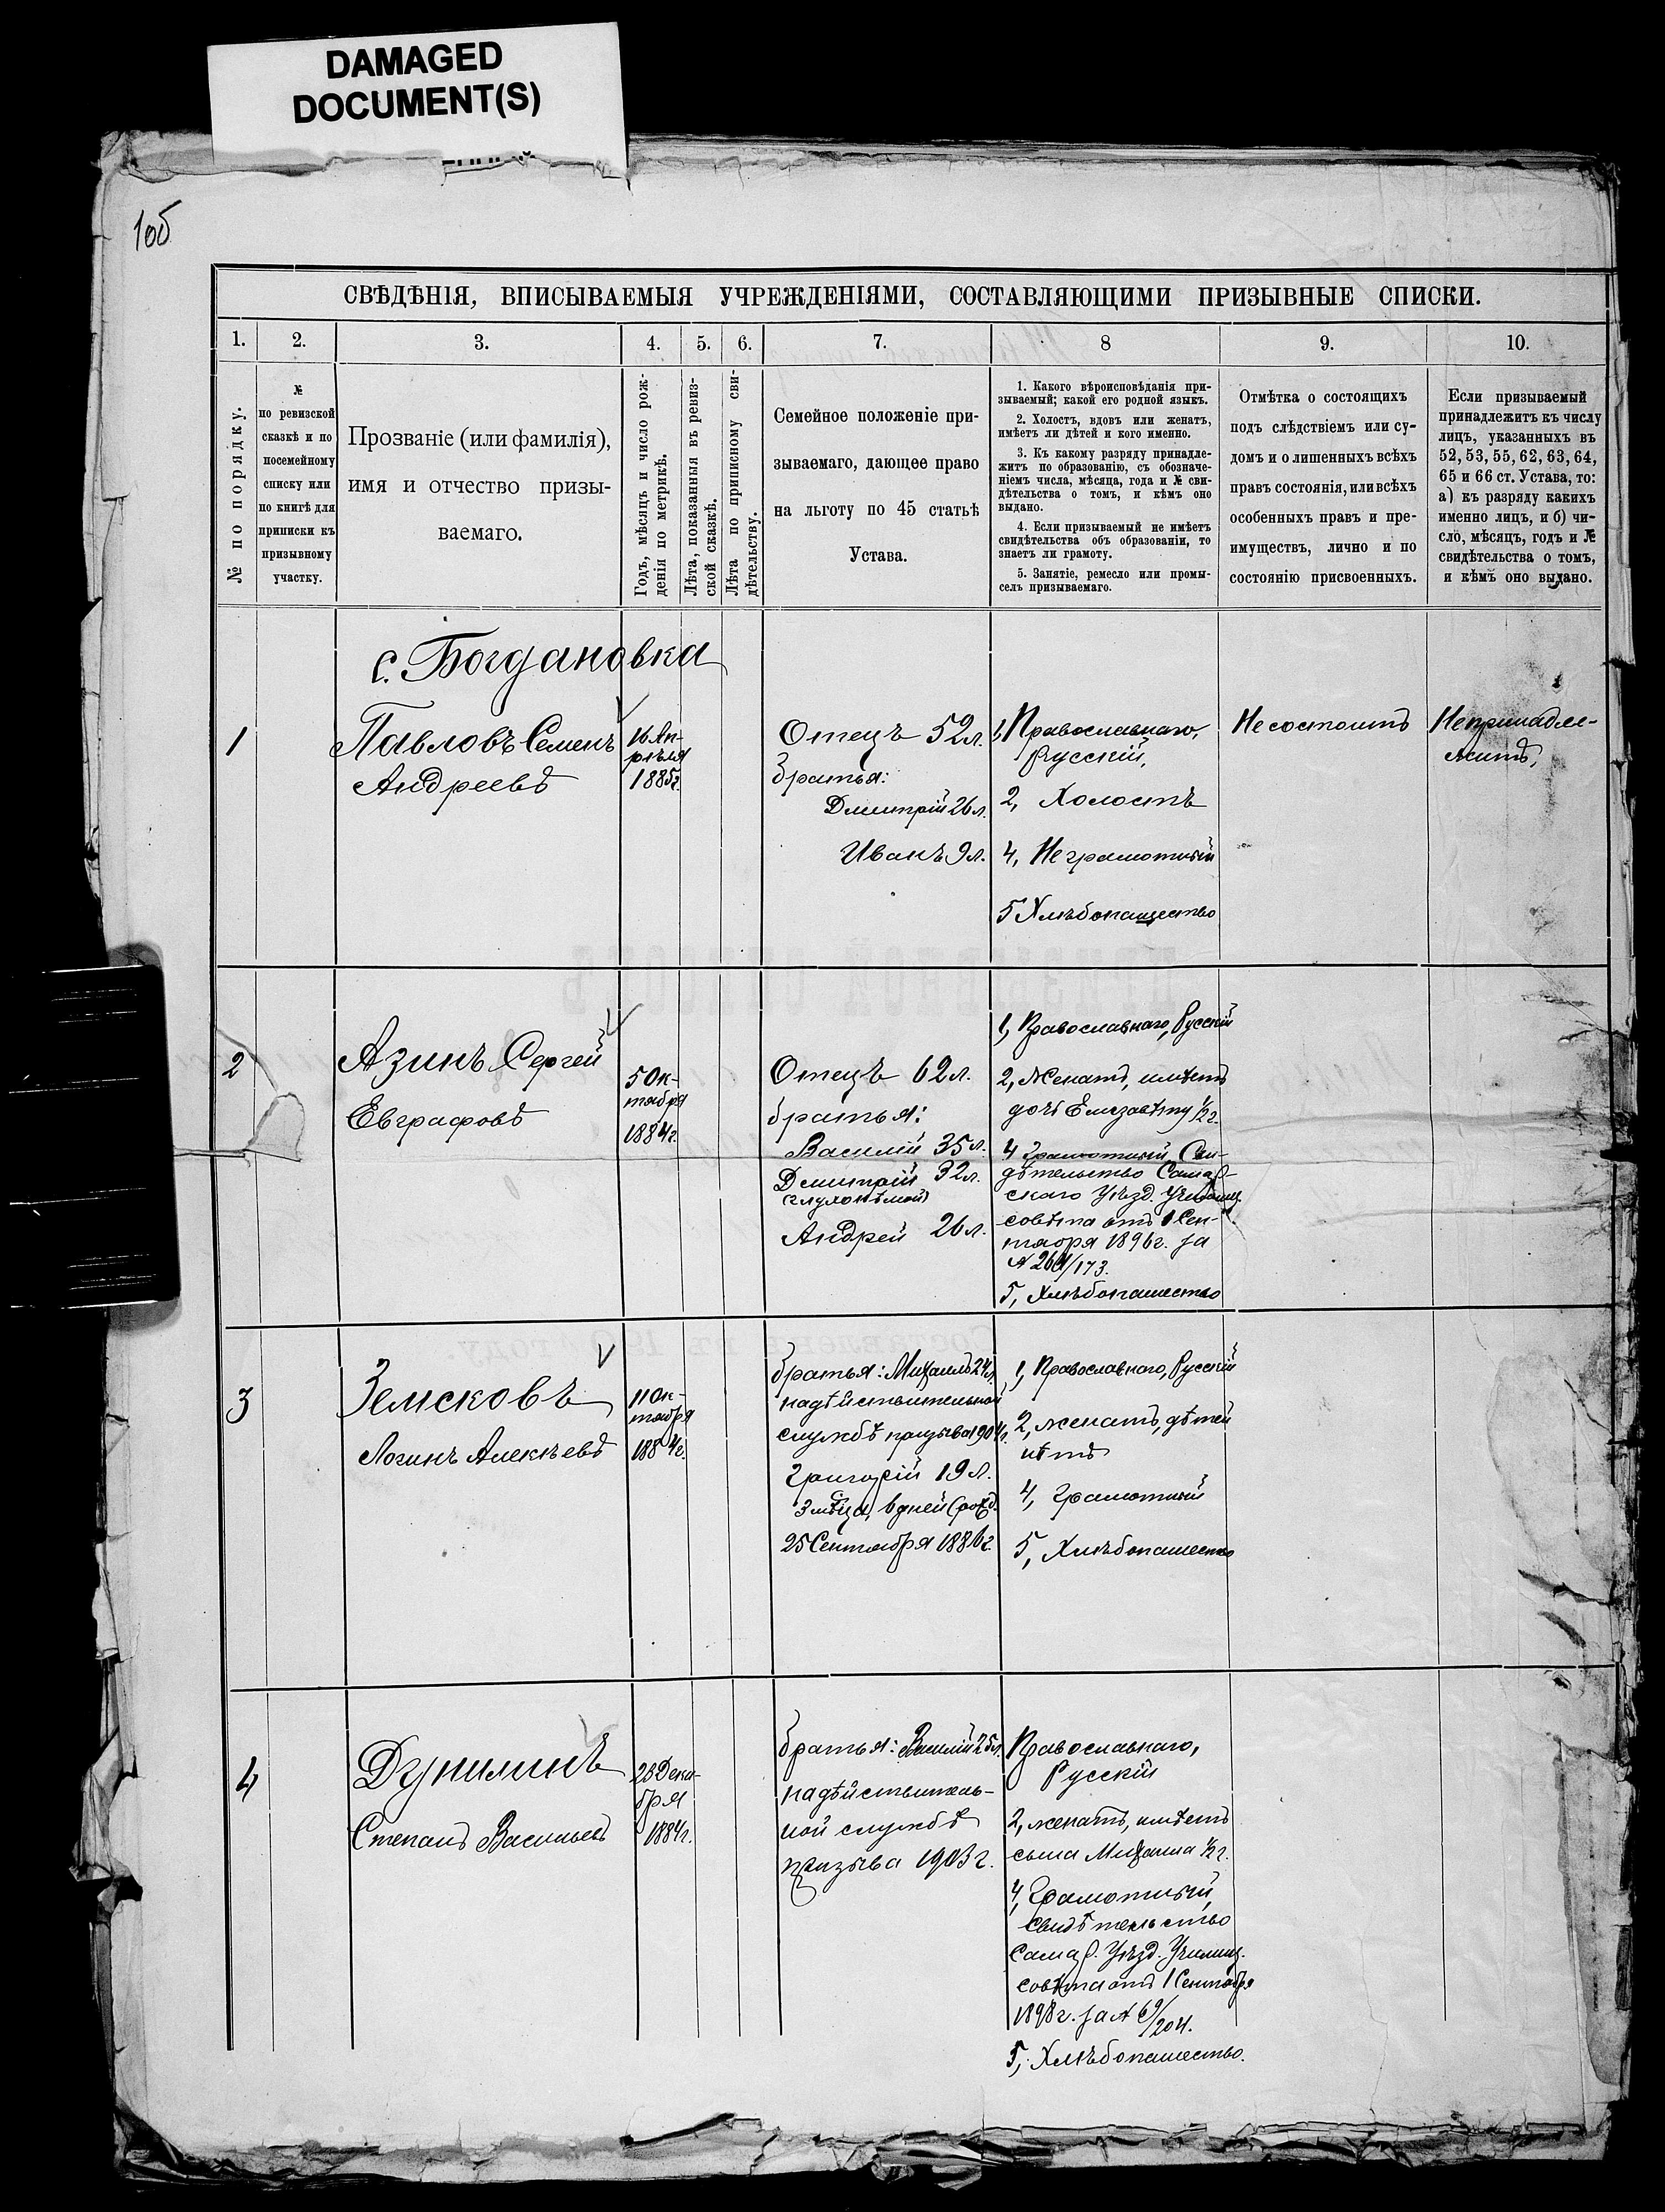 DAMAGED
DOCUMENT(S)
106
СВѢДѢНІЯ, ВПИСЫВАЕМЫЯ УЧРЕЖДЕНІЯМИ, СОСТАВЛЯЮЩИМИ ПРИЗЫВНЫЕ СПИСКИ.
1.
2.
3.
4.
5.
6.
7.
8
9.
10.
№ по порядку.
№
по ревизской
сказкѣ и по
посемейному
списку или
по книгѣ для
приписки къ
призывному
участку.
Прозваніе (или фамилія),
имя и отчество призы-
ваемаго.
Годъ, мѣсяцъ и число рож-
денія по метрикѣ.
Лѣта, показанныя въ ревиз-
ской сказкѣ.
Лѣта по приписному сви-
дѣтельству.
Семейное положеніе при-
зываемаго, дающее право
на льготу по 45 статьѣ
Устава.
1. Какого вѣроисповѣданія при-
зываемый; какой его родной языкъ.
2. Холостъ, вдовъ или женатъ,
имѣетъ ли дѣтей и кого именно.
3. Къ какому разряду принадле-
житъ по образованію, съ обозначе-
ніемъ числа, мѣсяца, года и № сви-
дѣтельства о томъ, и кѣмъ оно
выдано.
4. Если призываемый не имѣетъ
свидѣтельства объ образованіи, то
знаетъ ли грамоту.
5. Занятіе, ремесло или промы-
селъ призываемаго.
Отмѣтка о состоящихъ
подъ слѣдствіемъ или су-
домъ и о лишенныхъ всѣхъ
правъ состоянія, или всѣхъ
особенныхъ правъ и пре-
имуществъ, лично и по
состоянію присвоенныхъ.
Если призываемый
принадлежитъ къ числу
лицъ, указанныхъ въ
52, 53, 55, 62, 63, 64,
65 и 66 ст. Устава, то:
а) къ разряду какихъ
именно лицъ, и б) чи-
сло, мѣсяцъ, годъ и №
свидѣтельства о томъ,
и кѣмъ оно выдано.
с. Богдановка
1
Павловъ Семенъ
Андреевъ
16 Ап-
рѣля
1885г.
Отецъ 52л.
братья:
Дмитрій 26л.
Иванъ 9л.
1, Православнаго,
Русскій,
2, Холостъ
4, Неграмотный
5 Хлѣбопашество
Не состоитъ
Непринадле-
житъ,
2
Азинъ Сергей
Евграфовъ
5 Ок-
тября
1884г.
Отецъ 62л.
братья:
Василій 35л.
Дмитрій 32л.
(глухонѣмой)
Андрей 26л.
1, Православнаго, Русскій
2, Женатъ, имѣетъ
дочь Елизавѣту ½ г.
4 Грамотный, Сви-
дѣтельство Самар-
скаго Уѣзд. Училищ.
совѣта отъ 1 Сен-
тября 1896г. за
№ /173.
5, Хлѣбопашество
3
Земсковъ
Логинъ Алексѣевъ
11 Ок-
тября
1884г.
братья: Михаилъ 24л.
надѣйствительной
службѣ призыва 1904г.
Григорій 19 л.
3 м-ца, 6 дней (рожд.
25 Сентября 1886г.
1, Православнаго, Русскій
2, женатъ, дѣтей
нѣтъ
4, Грамотный
5, Хлѣбопашество
4
Дунилинъ
Степанъ Васильевъ
28 Дека-
бря
1884г.
братья: Василій 25л.
надѣйствитель-
ной службѣ
призыва 1903г.
Православнаго,
Русскій
2, женатъ, имѣетъ
сына Михаила ½ г.
4, Грамотный,
свидѣтельство
Самар. Уѣзд. Училищ.
совѣта отъ 1 Сентября
1898г. за № 69/204.
5, Хлѣбопашество.